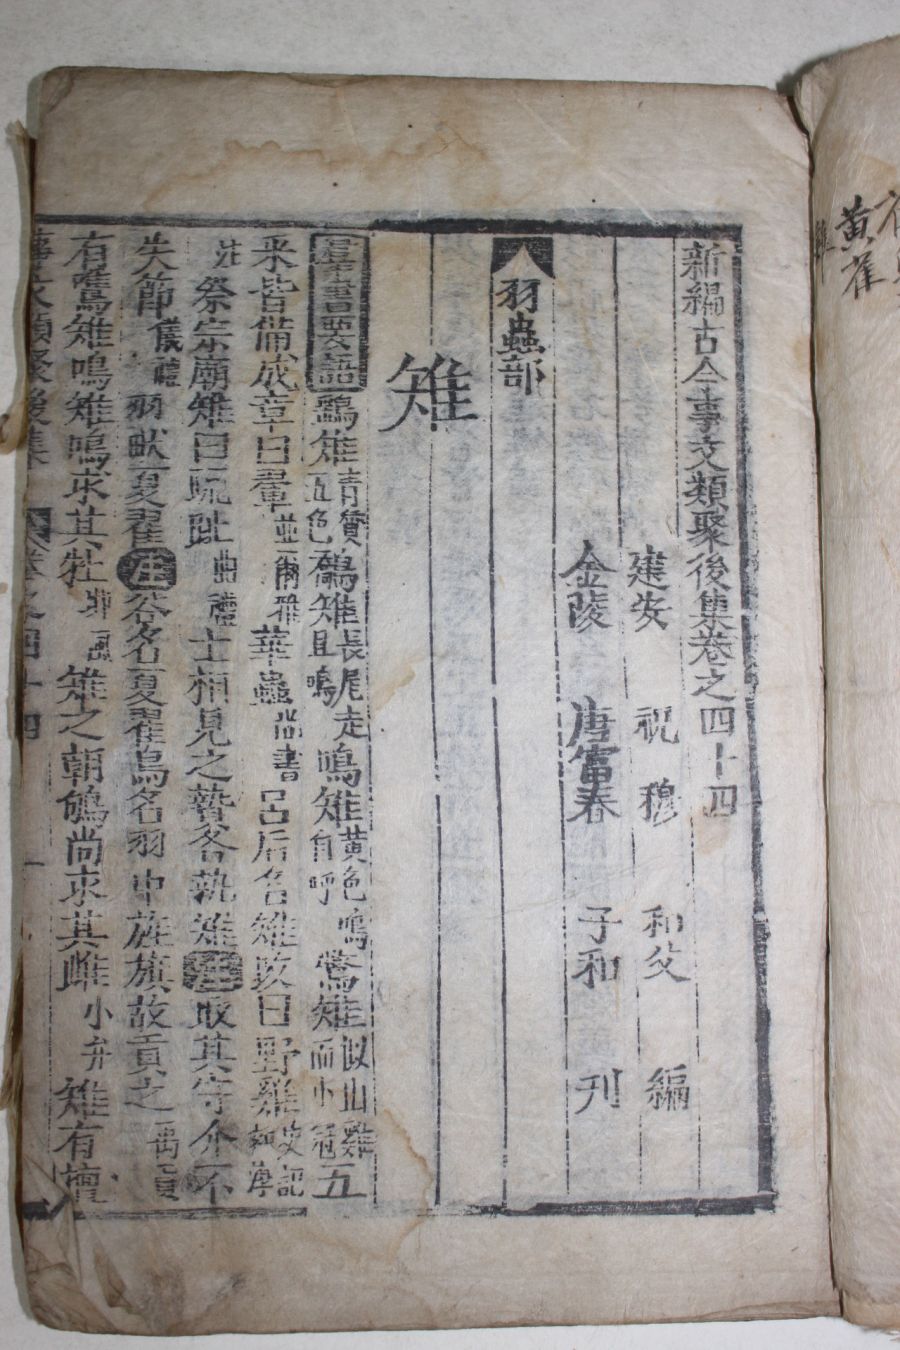 黃雀
新編古今事文類聚後集卷之四十四
建安 祝穆 和父 編
金陵 唐富春 子和 刊
羽蟲部
雉
羣書要語 鷂雉青質五色鷮雉長尾走且鳴鳴雉黃色鳴自呼鷩雉似山雞而小冠五
采皆備成章曰翬並爾雅華蟲尚書呂后名雉改曰野雞史記
祭宗廟雉曰疏趾曲禮士相見之贄冬執雉注取其守介不
失節儀禮羽畎夏翟注谷名夏翟鳥名羽中旌旗故貢之禹貢
有鷕雉鳴雉鳴求其牡邶風雉之朝鴝尚求其雌小弁雉有
事文類聚後集 卷之四十四 一